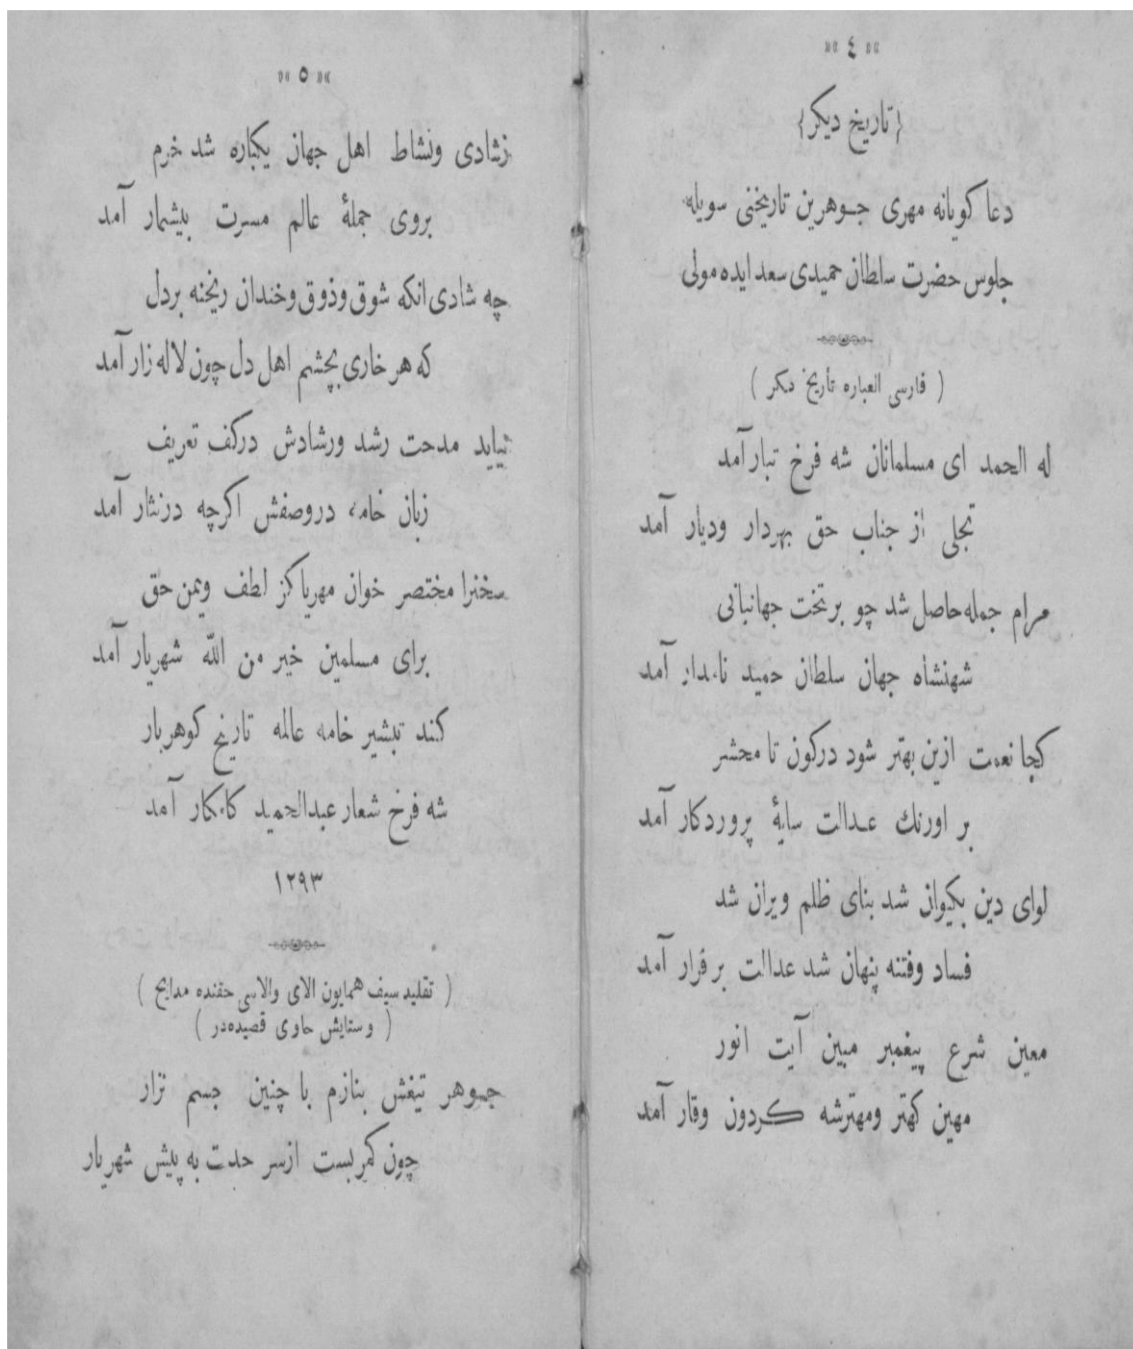 «« ٤ »»
{تاریخ دیكر}
دعا كویانه مهری جوهرین تاریخنی سویله
جلوس حضرت سلطان حمیدی سعد ایده مولی
( فارسی العباره تأریخ دیكر )
له الحمد ای مسلمانان شه فرخ تبار آمد
تجلی از جناب حق بهردار ودیار آمد
مرام جمله حاصل شد چو بر تخت جهانبانی
شهنشاه جهان سلطان حمید نامدار آمد
كجا نعمت ازین بهتر شود دركون تا محشر
بر اورنك عدالت سایهٔ پروردكار آمد
لوای دین بكیوان شد بنای ظلم ویران شد
فساد وفتنه پنهان شد عدالت بر قرار آمد
معین شرع پیغمبر مبین آیت انور
مهین كهتر ومهترشه كردون وقار آمد
«« ٥ »»
زشادی ونشاط اهل جهان یكباره شد خرم
بروی جملهٔ عالم مسرت بیشمار آمد
چه شادی انكه شوق وذوق وخندان ریخنه بردل
كه هر خاری بچشم اهل دل چون لاله زار آمد
نیاید مدحت رشد ورشادش دركف تعریف
زبان خامه دروصفش اكرچه درنثار آمد
سخنرا مختصر خوان مهریا كز لطف ویمن حق
برای مسلمین خیر من الله شهریار آمد
كند تبشیر خامه عالمه تاریخ كوهربار
شه فرخ شعار عبدالحمید كامكار آمد
١٢٩٣
( تقلید سیف همایون الای والاسی حقنده مدایح )
( وستایش حاوی قصیده‌در )
جوهر تیغش بنازم با چنین جسم نزار
چون كمر بست ازسر حدت به پیش شهریار